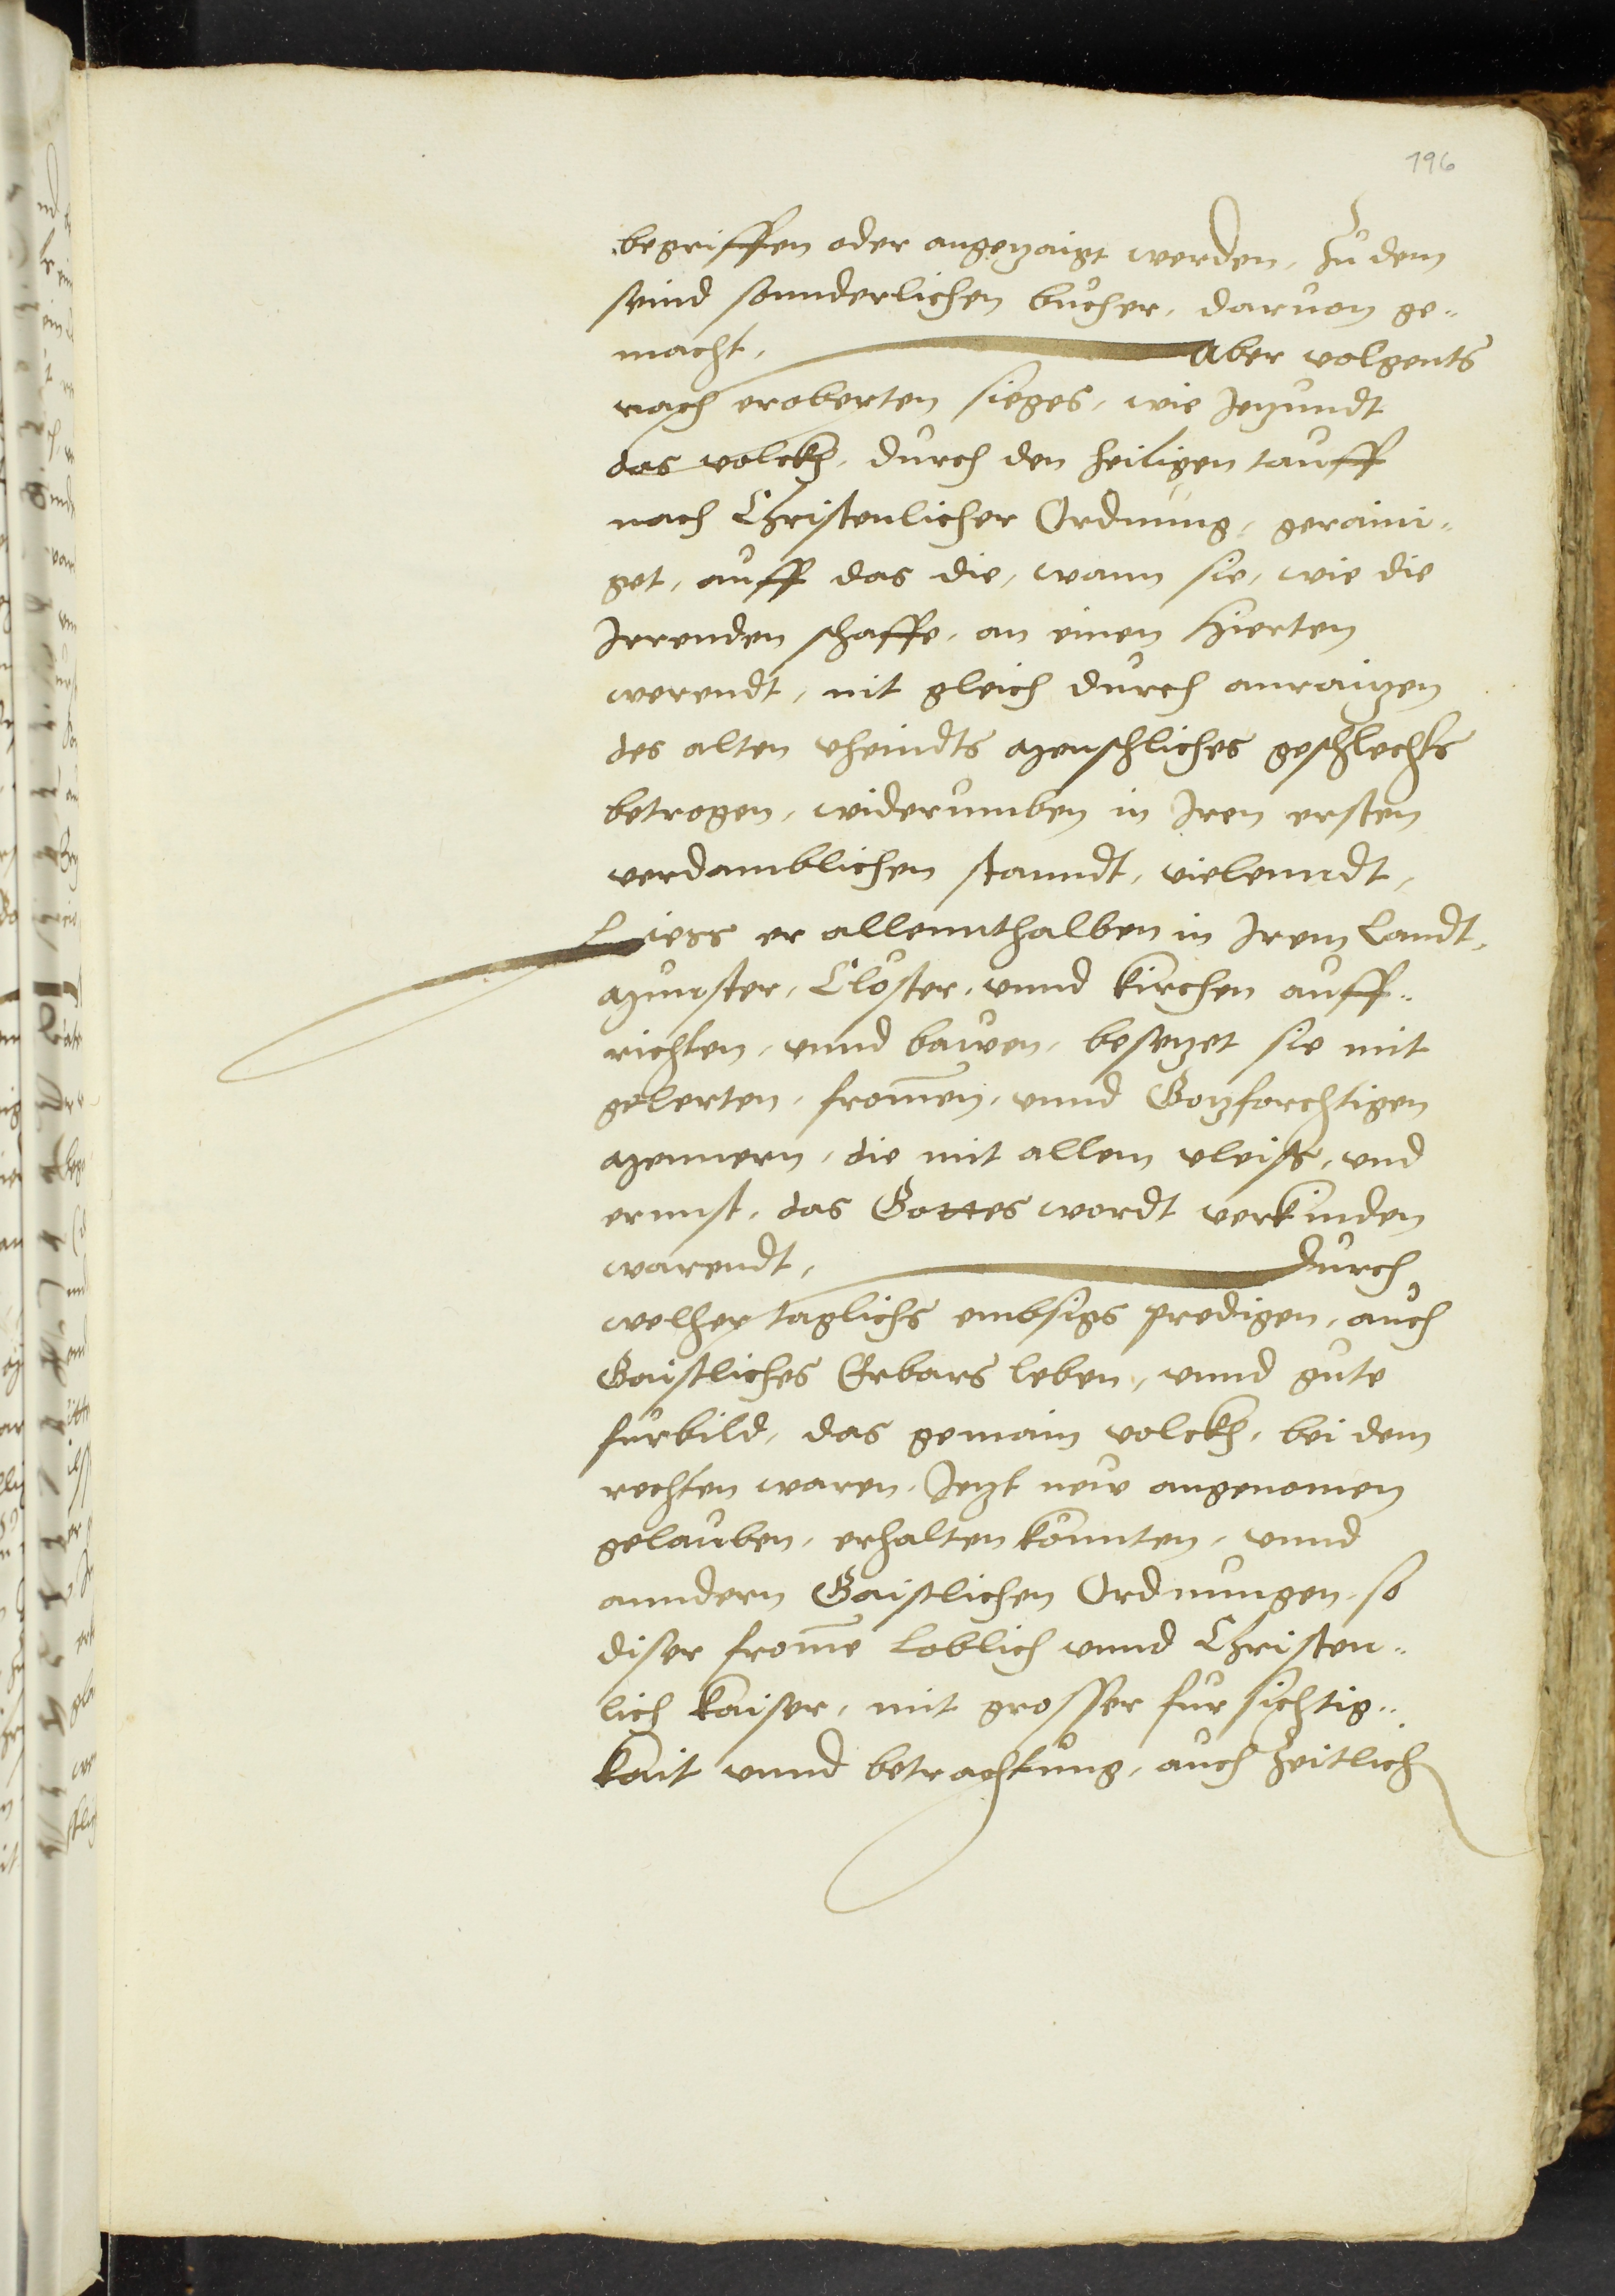 196
begriffen oder angezaigt werden, Zu dem
seind sonnderlichen bücher, daruon ge-
macht, Aber volgents
nach eroberten sieges, wie Jezundt
das volckh, durch den heiligen tauff
nach Christenlicher Ordnung, geraini-
get, auff das die, wann sie, wie die
Irrenden schaffe, an einen Hierten
werendt, nit gleich durch anraizen
des alten vheindts menschliches geschlechts
betrogen, widerumben in Iren ersten
verdamblichen stanndt, vielenndt,
Liess er allennthalben in Irem Landt,
Munster, Clöster, vnnd kirchen auff-
richten, vnnd bawen, besezet sie mit
gelerten, from̅en, vnnd Gozforchtigen
Mennern, die mit allem vleiss, vnd
ernnst, das Gottes wordt verkinden
warendt, durch
welher taglichs embsigs predigen, auch
Gaistliches Erbars leben, vnnd gute
fürbild, das gemain volckh, bei dem
rechten waren, Jezt new angenomen
gelauben, erhalten könnten, vnnd
anndern Gaistlichen Ordnungen, so
diser from̅e loblich vnnd Christen-
lich kaiser, mit grosser fürsichtig-
kait vnnd betrachtung, auch Zeitlich